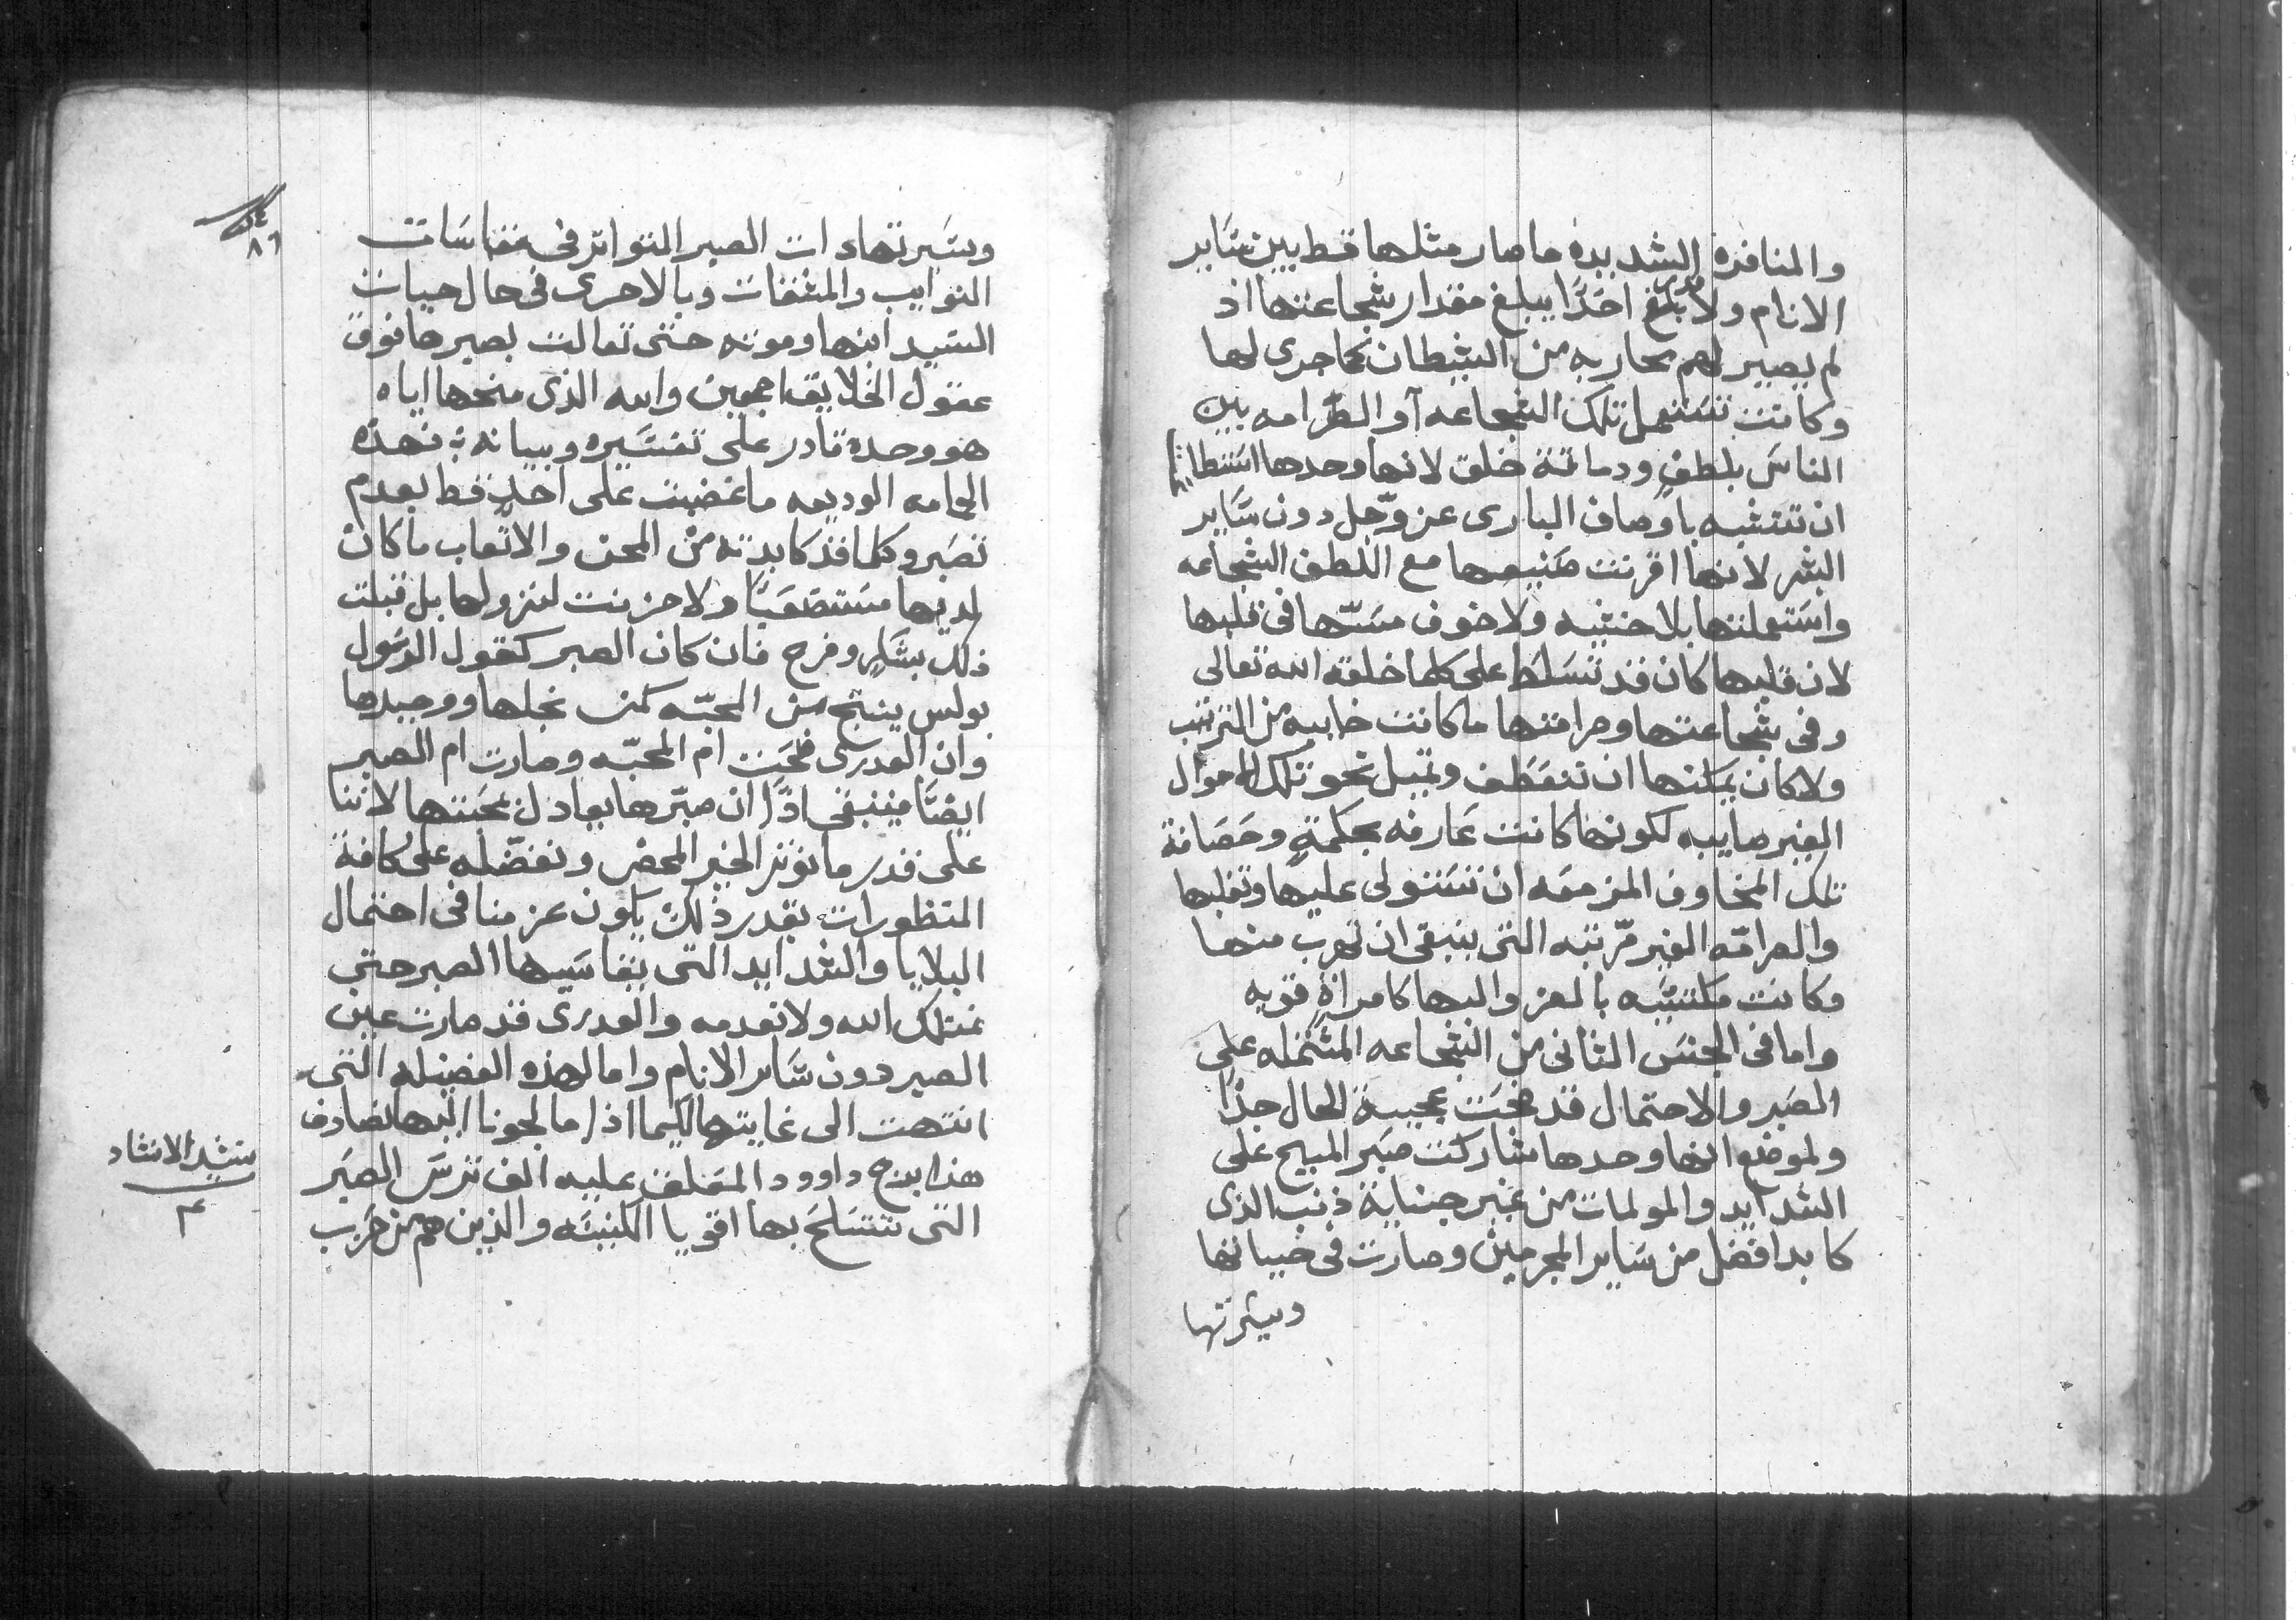 والمنافذه الشديده ما صار مثلها قط بين سَاير
الانام ولا بلغ احدًا يبلغ مقدار شجاعتها اذ
لم يصير لهم محاربه من الشيطان كما جرى لها
وكانت تستعمل تلك الشجاعه او الصَّرامه بين
الناسَ بلطفٍ ودماثة خلق لانها وحدها استطا
ان تتشبه باوصاف البارى عز وجّل دون سَاير
البشر لانها اقرنت صَنيعها مع اللطف الشجاعه
واستعملتها بلا خشيه ولا خوف مسَّها فى قلبها
لان قلبها كان قد تسَلطَ على كلما خلقه الله تعالى
وفى شجاعتها وصرامتها ما كانت خاييه من الترتيب
ولا كان يمكنها ان تنعَطف وتميل نحو تلك الاحوال
الغير صايبه لكونها كانت عَارفه بحكمةٍ وحَصَافة
تلك المخاوف المزمعَه ان تستولى عليها وتغلبها
والصرامّه الغير مرّتبه التى ينبغى ان تهرب منها
وكانت مكتسَبه بالعز والبها كامراةٍ قويه
واما فى الجنسَ الثانى من الشجاعه المشتمله على
الصَبر والاحتمال قد ضحَت عجيبة الحال جدًا
ولموضع انها وحدها شاركت صبَر المسيح على
الشدايد والمولمات من غير جناية ذنب الذى
كابد افضل من سَاير المجرمين وصارت فى حياتها
وسيرتها
٨٦
وسَيرتها ذات الصبر المتواتر فى مقاسَات
النوايب والمشقات وبالاحرى فى حال حيات
السَيد ابنها وموته حتى تعالت بصبرها فوق
عقول الخلايق اجمعين والله الذى منحها اياه
هو وحده قادر على تفسَيره وبيانه ؛ فهذه
الحامه الوديعه ما غضبت على احدٍ قط بعدم
تصَبر وكلما قد كابدته من المحن والاتعاب ما كان
لديها مستصعَبًا ولا حزنت لنزولها بل قبلت
ذلك بشكرٍ وفرح فان كان الصبر كقول الرسَول
بولس ينتج من المحبّه كمن نجلها ووحيدها
وان العدرى ضحَت ام المحبّه وصارت ام الصبر
ايضًا فينبغى اذًا ان صبّرها يعادل محبتها لاننا
على قدر ما نوثر الخير المحض ونفضّله على كافة
المنظورات بقدر ذلك يكون عزمنا فى احتمال
البلايا والشدايد التى يقاسَيها الصبر حتى
نمتلك الله ولا نعدمه والعدرى قد صارت عين
الصبر دون سَاير الانام واما لهذه الفضيله التى
انتهت الى غايتها لكيما اذا ما لجونا اليها نصادف
هذا برج داوود المعَلق عليه الف ترسَ الصبَر
التى تتسَلحَ بها اقويا الكنيسَه والذين هم من حَرب
نشيد الانشاد
٤